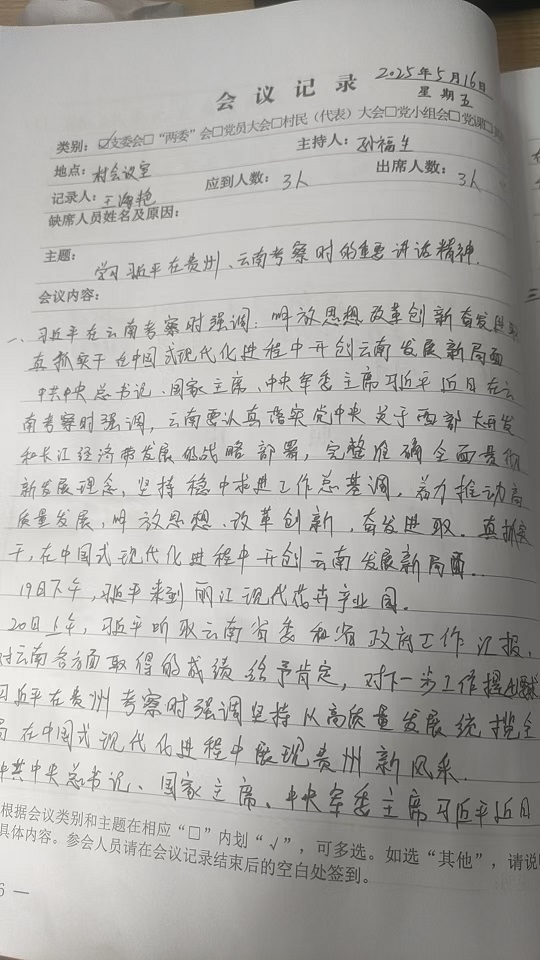 会议记录 2025年5月16日
星期五
类别：☑支委会□“两委”会□党员大会□村民（代表）大会□党小组会□党课□
地点：村会议室 主持人：孙福生
记录人：王海艳 应到人数：3人 出席人数：3人
缺席人员姓名及原因：
主题：
学习习近平在贵州、云南考察时的重要讲话精神.
会议内容：
一、习近平在云南考察时强调：解放思想改革创新奋发进取
真抓实干在中国式现代化进程中开创云南发展新局面
中共中央总书记、国家主席、中央军委主席习近平近日在云
南考察时强调，云南要认真落实党中央关于西部大开发
和长江经济带发展的战略部署，完整准确全面贯彻
新发展理念，坚持稳中求进工作总基调，着力推动高
质量发展，解放思想、改革创新，奋发进取、真抓实
干，在中国式现代化进程中开创云南发展新局面.
19日下午，习近平来到丽江现代花卉产业园。
20日上午，习近平听取云南省委和省政府工作汇报，
对云南各方面取得的成绩给予肯定，对下一步工作提出要求
习近平在贵州考察时强调坚持以高质量发展统揽全
局在中国式现代化进程中展现贵州新风采.
中共中央总书记、国家主席、中央军委主席习近平近日
根据会议类别和主题在相应“□”内划“√”，可多选。如选“其他”，请说
具体内容。参会人员请在会议记录结束后的空白处签到。
6 —